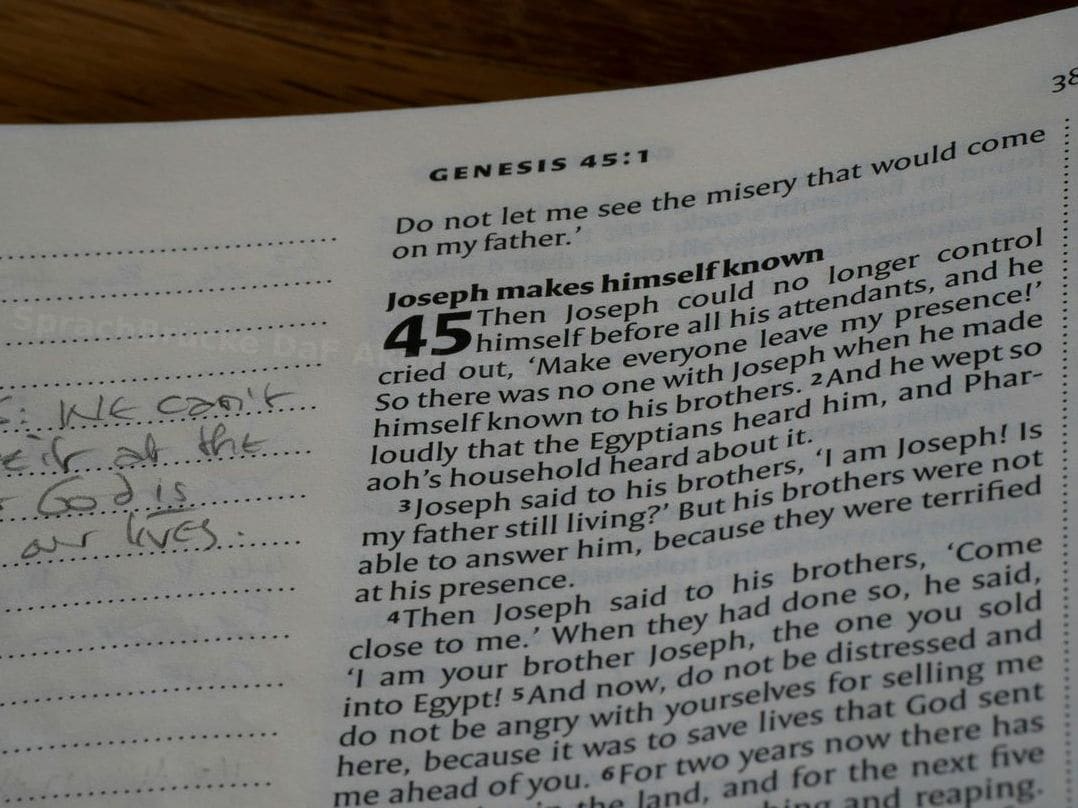 38
GENESIS 45:1
Do not let me see the misery that would come
on my father.’
Joseph makes himself known
45 Then Joseph could no longer control
himself before all his attendants, and he
cried out, ‘Make everyone leave my presence!’
So there was no one with Joseph when he made
himself known to his brothers. 2 And he wept so
loudly that the Egyptians heard him, and Phar-
aoh’s household heard about it.
3 Joseph said to his brothers, ‘I am Joseph! Is
my father still living?’ But his brothers were not
able to answer him, because they were terrified
at his presence.
4 Then Joseph said to his brothers, ‘Come
close to me.’ When they had done so, he said,
‘I am your brother Joseph, the one you sold
into Egypt! 5 And now, do not be distressed and
do not be angry with yourselves for selling me
here, because it was to save lives that God sent
me ahead of you. 6 For two years now there has
the land, and for the next five
and reaping.
we can't
at the
God is
our lives.